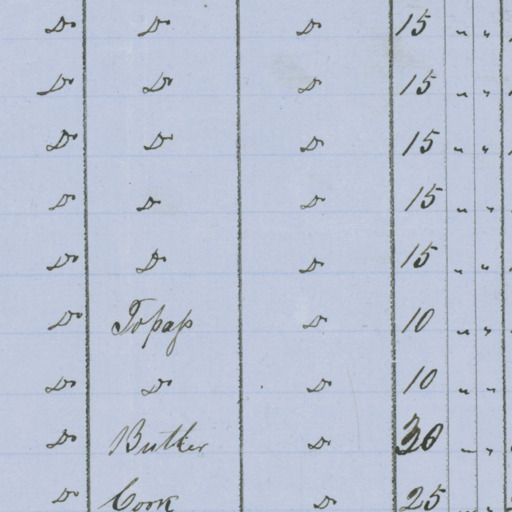 Do Do Do 15 " "
Do Do Do 15 " "
Do Do Do 15 " "
Do Do Do 15 " "
Do Do Do 15 " "
Do Topass Do 10 " "
Do Do Do 10 " "
Do Butler Do 30 " "
Do Cook Do 25 " "